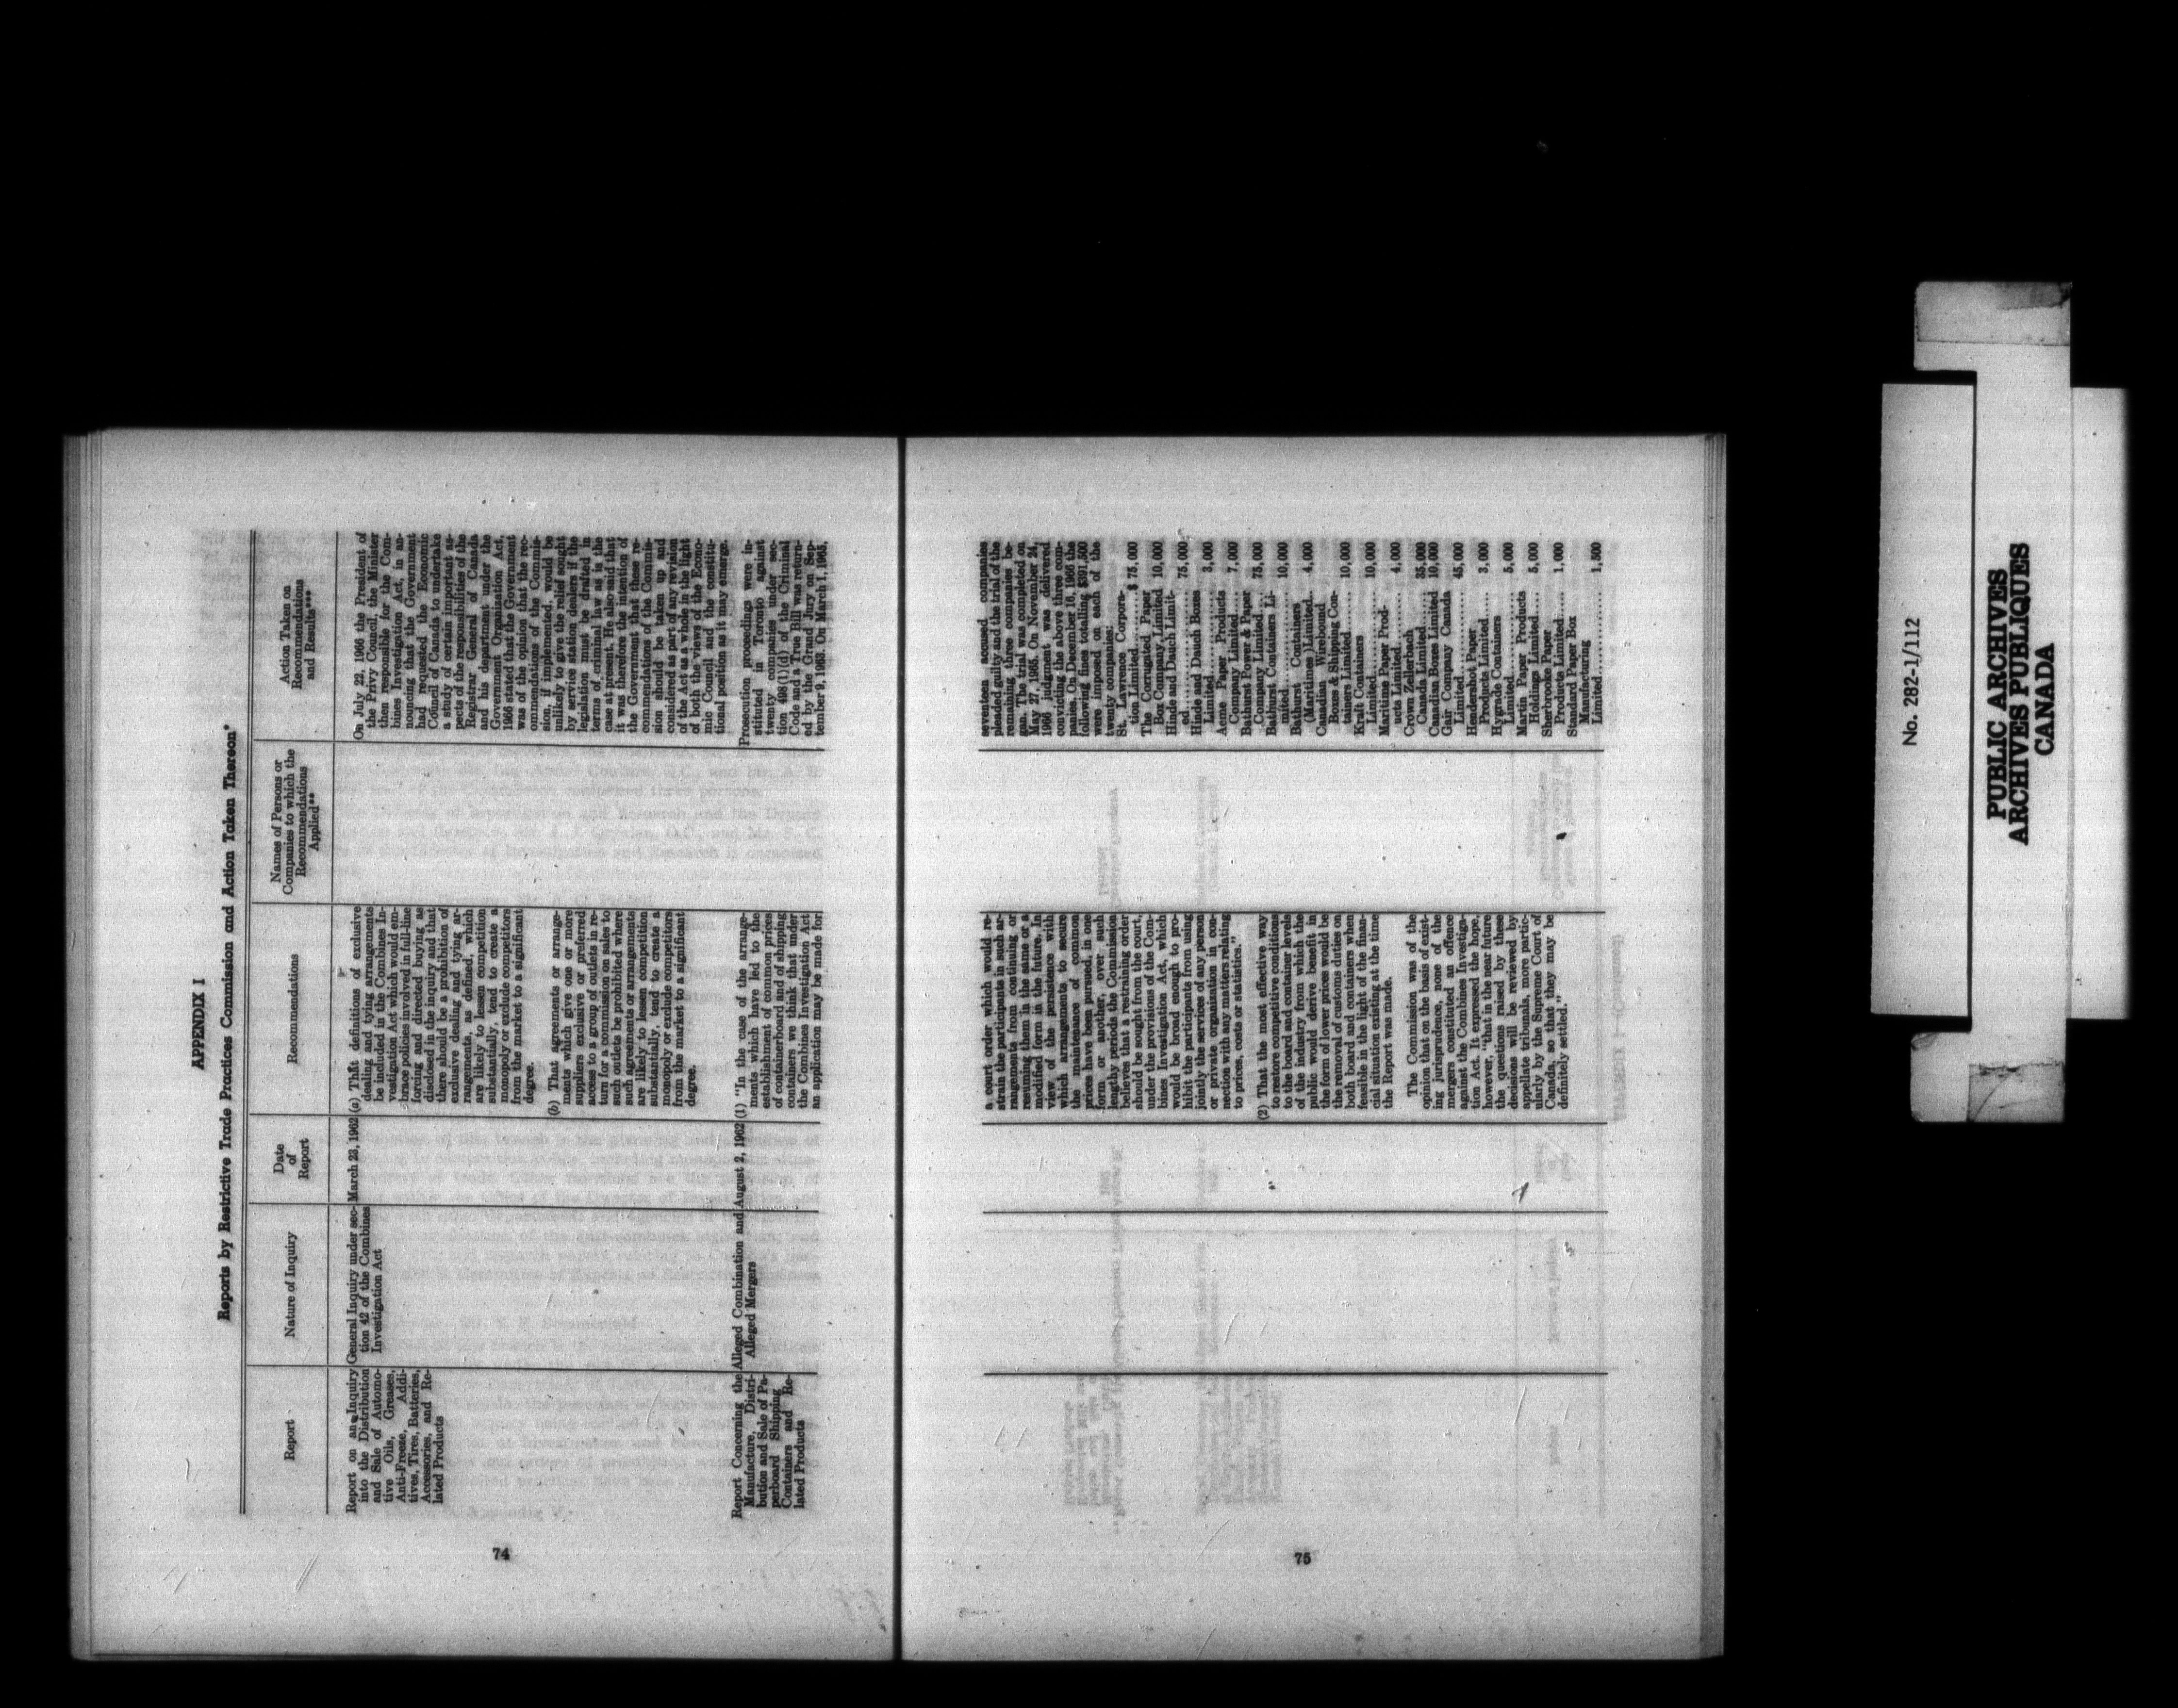 APPENDIX I
Reports by Restrictive Trade Practices Commission and Action Taken Thereon*
Report
Nature of Inquiry
Date
of
Report
Recommendations
Names of Persons or
Companies to which the
Recommendations
Applied**
Action Taken on
Recommendations
and Results***
Report on an Inquiry
into the Distribution
and Sale of Automo-
tive Oils, Greases,
Anti-Freeze, Addi-
tives, Tires, Batteries,
Accessories, and Re-
lated Products
General Inquiry under sec-
tion 42 of the Combines
Investigation Act
March 23, 1962
(a) That definitions of exclusive
dealing and tying arrangements
be included in the Combines In-
vestigation Act which would em-
brace policies involved in full-line
forcing and directed buying as
disclosed in the inquiry and that
there should be a prohibition of
exclusive dealing and tying ar-
rangements, as defined, which
are likely to lessen competition
substantially, tend to create a
monopoly or exclude competitors
from the market to a significant
degree.
(b) That agreements or arrange-
ments which give one or more
suppliers exclusive or preferred
access to a group of outlets in re-
turn for a commission on sales to
such outlets be prohibited where
such agreements or arrangements
are likely to lessen competition
substantially, tend to create a
monopoly or exclude competitors
from the market to a significant
degree.
On July 22, 1966 the President of
the Privy Council, the Minister
then responsible for the Com-
bines Investigation Act, in an-
nouncing that the Government
had requested the Economic
Council of Canada to undertake
a study of certain important as-
pects of the responsibilities of the
Registrar General of Canada
and his department under the
Government Organization Act,
1966 stated that the Government
was of the opinion that the rec-
ommendations of the Commis-
sion, if implemented, would be
unlikely to give the relief sought
by service station dealers if the
legislation must be drafted in
terms of criminal law as is the
case at present. He also said that
it was therefore the intention of
the Government that these re-
commendations of the Commis-
sion should be taken up and
considered as part of any revision
of the Act as a whole in the light
of both the views of the Econo-
mic Council and the constitu-
tional position as it may emerge.
Report Concerning the
Manufacture, Distri-
bution and Sale of Pa-
perboard Shipping
Containers and Re-
lated Products
Alleged Combination and
Alleged Mergers
August 2, 1962
(1) "In the case of the arrange-
ments which have led to the
establishment of common prices
of containerboard and of shipping
containers we think that under
the Combines Investigation Act
an application may be made for
Prosecution proceedings were in-
stituted in Toronto against
twenty companies under sec-
tion 498(1)(d) of the Criminal
Code and a True Bill was return-
ed by the Grand Jury on Sep-
tember 9, 1963. On March 1, 1965,
74
a court order which would re-
strain the participants in such ar-
rangements from continuing or
resuming them in the same or a
modified form in the future. In
view of the persistence with
which arrangements to secure
the maintenance of common
prices have been pursued, in one
form or another, over such
lengthy periods the Commission
believes that a restraining order
should be sought from the court,
under the provisions of the Com-
bines Investigation Act, which
would be broad enough to pro-
hibit the participants from using
jointly the services of any person
or private organization in con-
nection with any matters relating
to prices, costs or statistics."
(2) That the most effective way
to restore competitive conditions
to the board and container levels
of the industry from which the
public would derive benefit in
the form of lower prices would be
the removal of customs duties on
both board and containers when
feasible in the light of the finan-
cial situation existing at the time
the Report was made.
The Commission was of the
opinion that on the basis of exist-
ing jurisprudence, none of the
mergers constituted an offence
against the Combines Investiga-
tion Act. It expressed the hope,
however, "that in the near future
the questions raised by these
decisions will be reviewed by
appellate tribunals, more partic-
ularly by the Supreme Court of
Canada, so that they may be
definitely settled."
seventeen accused companies
pleaded guilty and the trial of the
remaining three companies be-
gan. The trial was completed on
May 27, 1965. On November 24,
1966 judgment was delivered
convicting the above three com-
panies. On December 16, 1966 the
following fines totalling $391,500
were imposed on each of the
twenty companies:
St. Lawrence Corpora-
tion Limited.......... $ 75,000
The Corrugated Paper
Box Company Limited 10,000
Hinde and Dauch Limit-
ed.................. 75,000
Hinde and Dauch Boxes
Limited.............. 3,000
Acme Paper Products
Company Limited.... 7,000
Bathurst Power & Paper
Company Limited.... 75,000
Bathurst Containers Li-
mited................ 10,000
Bathurst Containers
(Maritimes) Limited.. 4,000
Canadian Wirebound
Boxes & Shipping Con-
tainers Limited........ 10,000
Kraft Containers
Limited.............. 10,000
Maritime Paper Prod-
ucts Limited.......... 4,000
Crown Zellerbach
Canada Limited...... 35,000
Canadian Boxes Limited 10,000
Gair Company Canada
Limited.............. 45,000
Hendershot Paper
Products Limited..... 3,000
Hygrade Containers
Limited.............. 5,000
Martin Paper Products
Holdings Limited..... 5,000
Sherbrooke Paper
Products Limited..... 1,000
Standard Paper Box
Manufacturing
Limited.............. 1,500
75
No. 282-1/112
PUBLIC ARCHIVES
ARCHIVES PUBLIQUES
CANADA